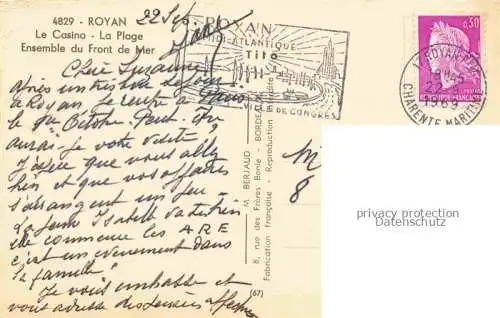 4829 - ROYAN
Le Casino - La Plage
Ensemble du Front de Mer
22 Sep
ROYAN
MIDI-ATLANTIQUE
Tité
VILLE DE CONGRES
0,30
17 ROYAN
22-9
1969
CHARENTE MARITIME
Chère Suzanne
Après un très
à Royan. Je rentre à Paris
le 1er Octobre. Peut-être
aurai-je votre visite,
J'espère que vous allez
bien et que vos affaires
s'arrangent un peu
La jeune Isabelle va très bien
elle commence les ARE
c'est un évènement dans
la famille
Je vous embrasse et
vous adresse
M. BERJAUD
8, rue des Frères Bonie - BORDEAUX
Fabrication française - Reproduction
(67)
M
8
privacy protection
Datenschutz